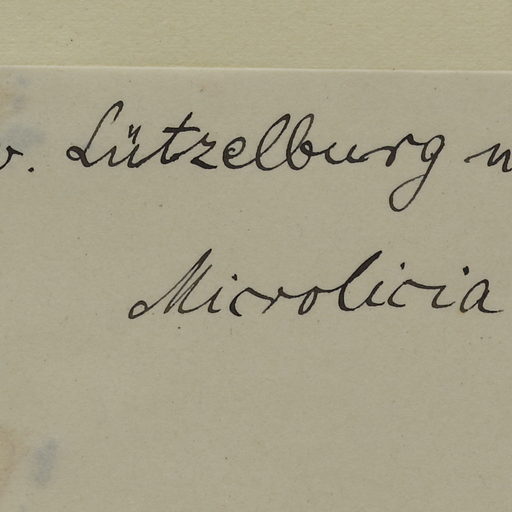 v. Lützelburg n
Microlicia